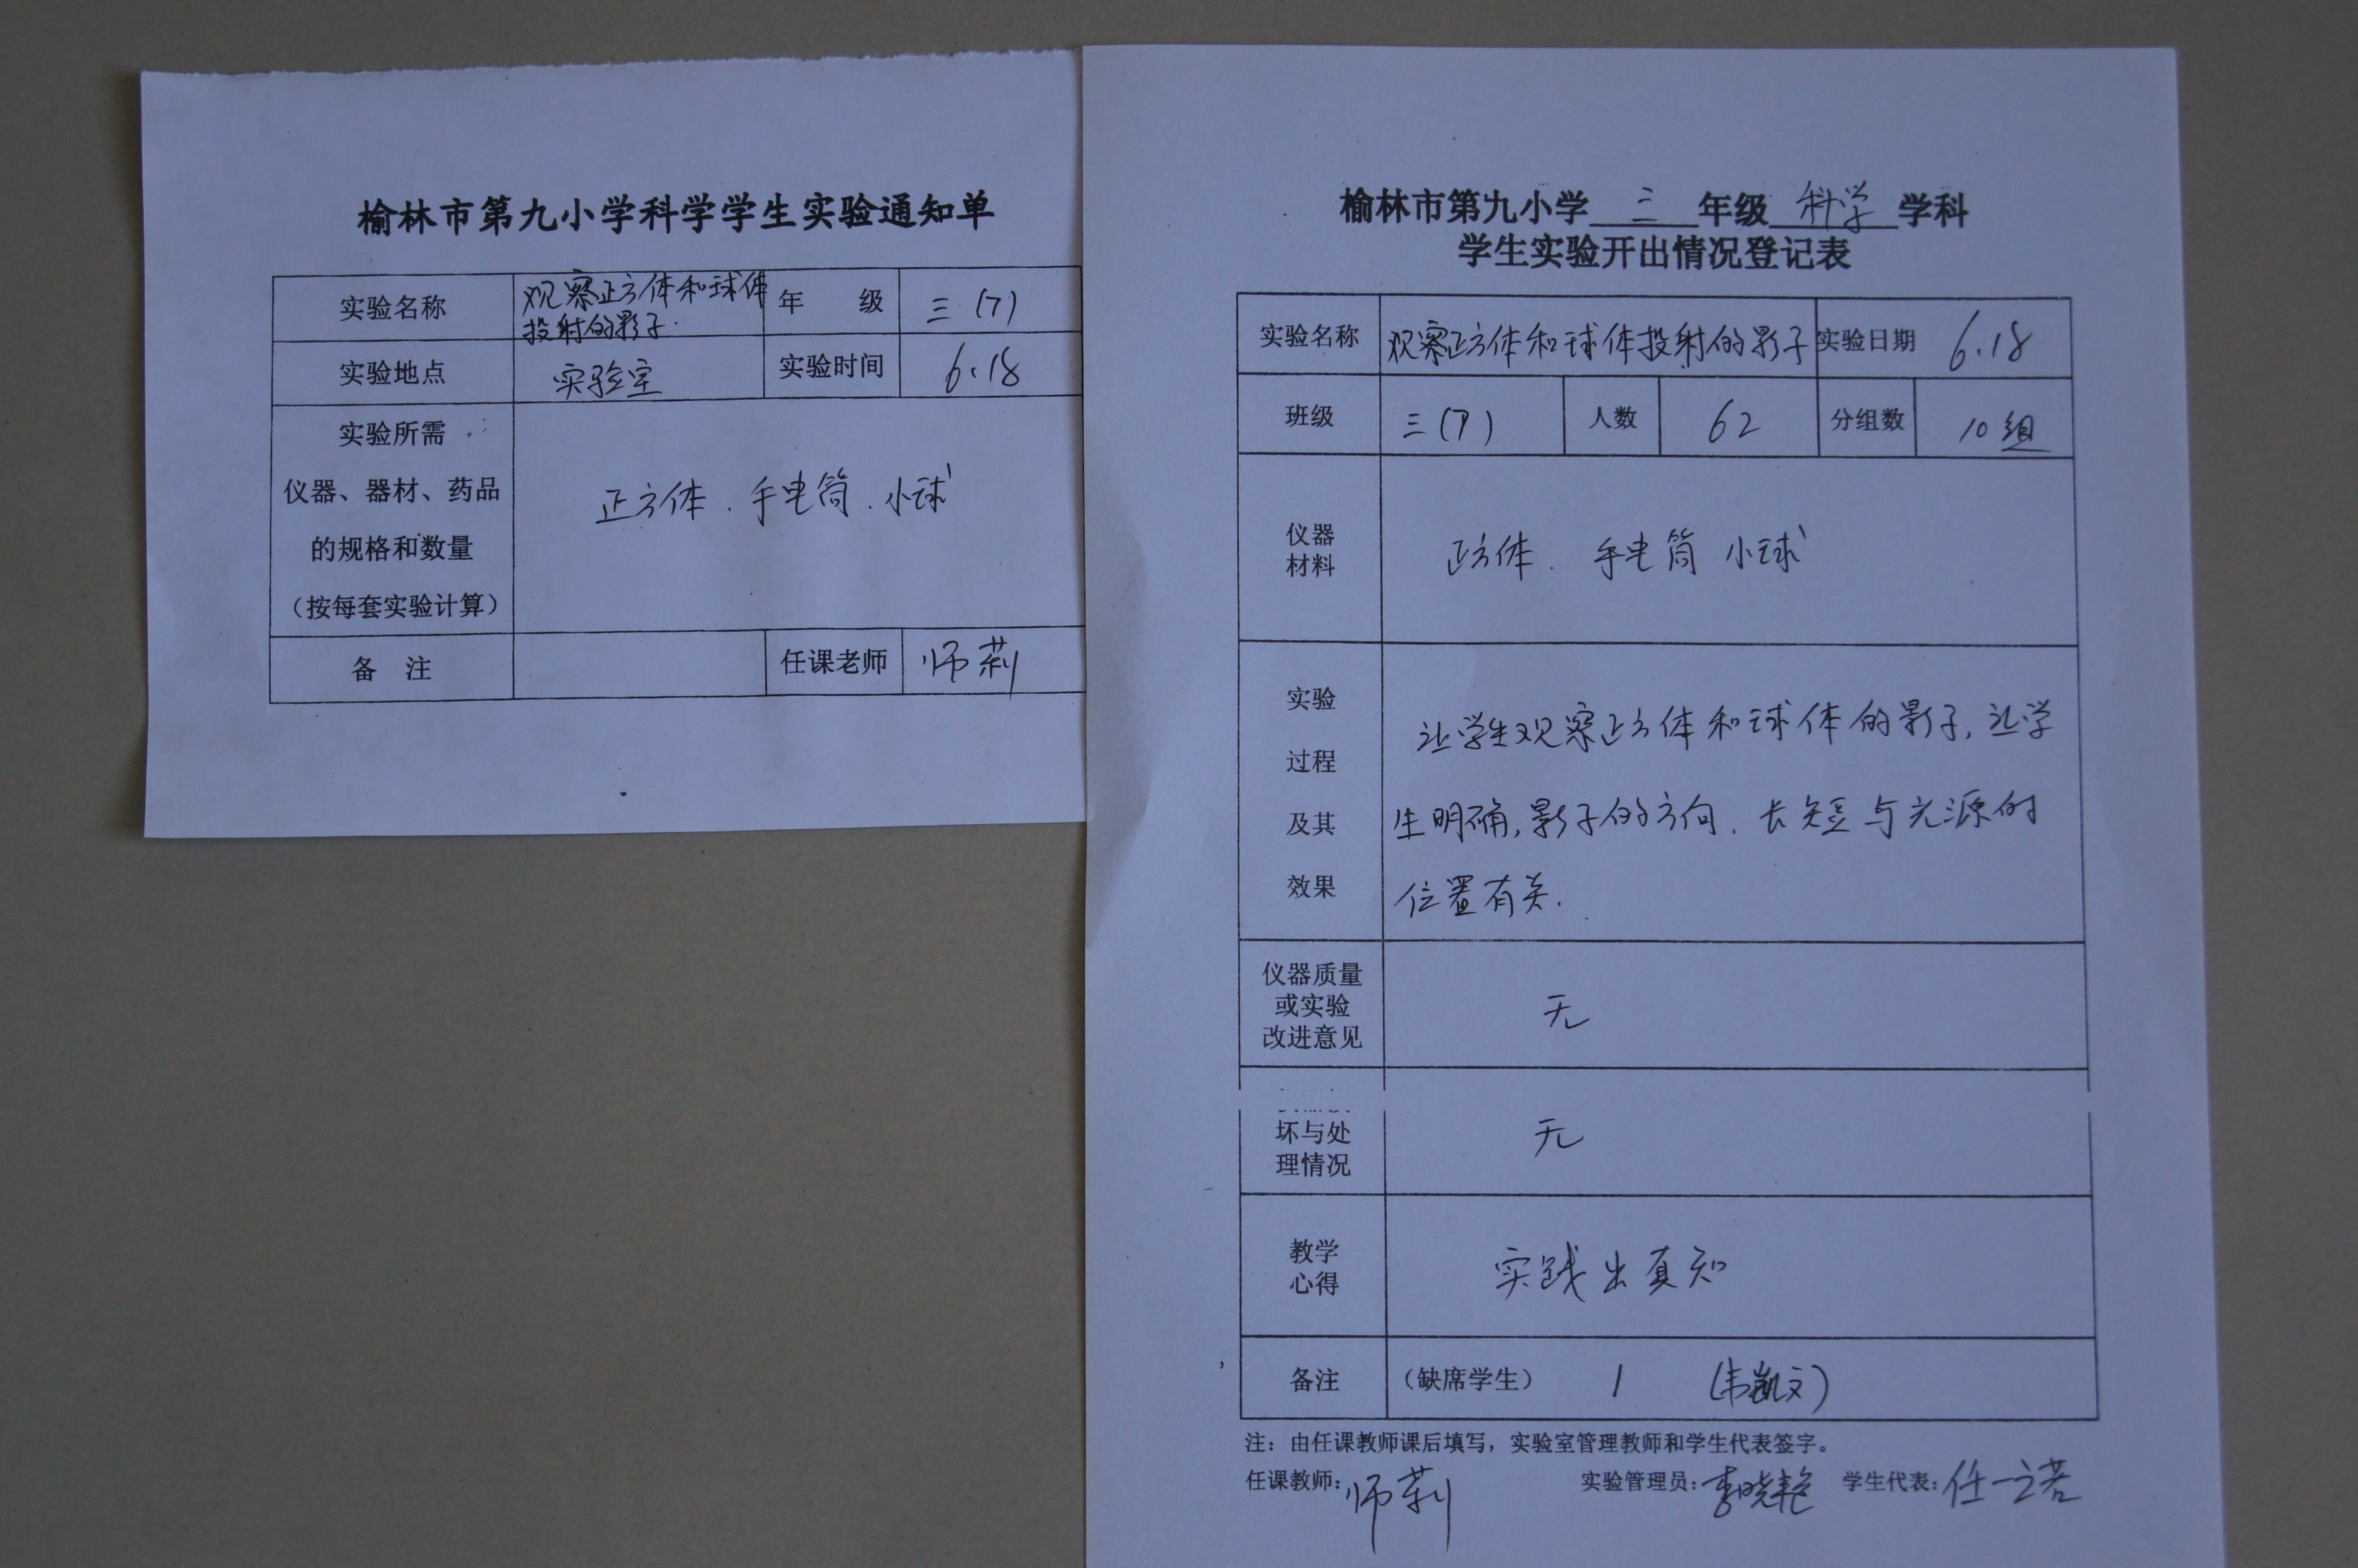 榆林市第九小学科学学生实验通知单
实验名称 观察正方体和球体投射的影子. 年 级 三(7)
实验地点 实验室 实验时间 6.18
实验所需
仪器、器材、药品
的规格和数量
(按每套实验计算)
正方体.手电筒.小球
备 注 任课老师 师莉
榆林市第九小学 三 年级 科学 学科
学生实验开出情况登记表
实验名称 观察正方体和球体投射的影子 实验日期 6.18
班级 三(7) 人数 62 分组数 10组
仪器
材料
正方体. 手电筒 小球
实验
过程
及其
效果
让学生观察正方体和球体的影子,让学
生明确,影子的方向.长短与光源的
位置有关.
仪器质量
或实验
改进意见
无
坏与处
理情况
无
教学
心得
实践出真知
备注 (缺席学生) 1 (韦凯文)
注:由任课教师课后填写,实验室管理教师和学生代表签字。
任课教师:师莉 实验管理员:李晓艳 学生代表:任一之若